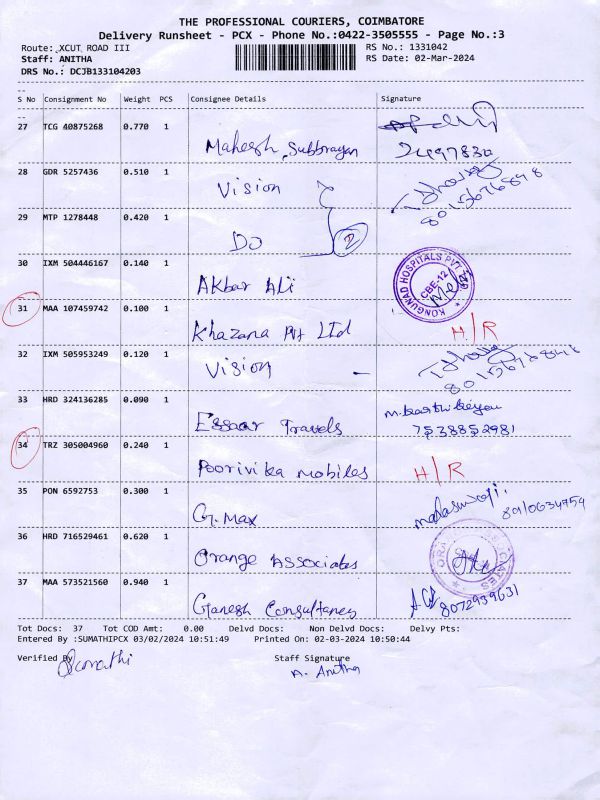 THE PROFESSIONAL COURIERS, COIMBATORE
Delivery Runsheet - PCX - Phone No.:0422-3505555 - Page No.:3
Route: XCUT ROAD III
RS No.: 1331042
Staff: ANITHA
RS Date: 02-Mar-2024
DRS No.: DCJB133104203
S No Consignment No Weight PCS Consignee Details Signature
27 TCG 40875268 0.770 1
Mahesh Subbrayan
28 GDR 5257436 0.510 1
Vision
29 MTP 1278448 0.420 1
Do 2
30 IXM 504446167 0.140 1
Akbar Ali
KONGUNAD HOSPITALS PVT
CBE-12
31 MAA 107459742 0.100 1
Khazana Pvt Ltd H/R
32 IXM 505953249 0.120 1
Vision -
33 HRD 324136285 0.090 1
Essaar Travels
7538852981
34 TRZ 305004960 0.240 1
Poorivika mobiles H/R
35 PON 6592753 0.300 1
G. Max
36 HRD 716529461 0.620 1
Orange Associates
37 MAA 573521560 0.940 1
Ganesh Consultancy 8072939631
Tot Docs: 37 Tot COD Amt: 0.00 Delvd Docs: Non Delvd Docs: Delvy Pts:
Entered By :SUMATHIPCX 03/02/2024 10:51:49 Printed On: 02-03-2024 10:50:44
Verified By Staff Signature
Sumathi A. Anitha